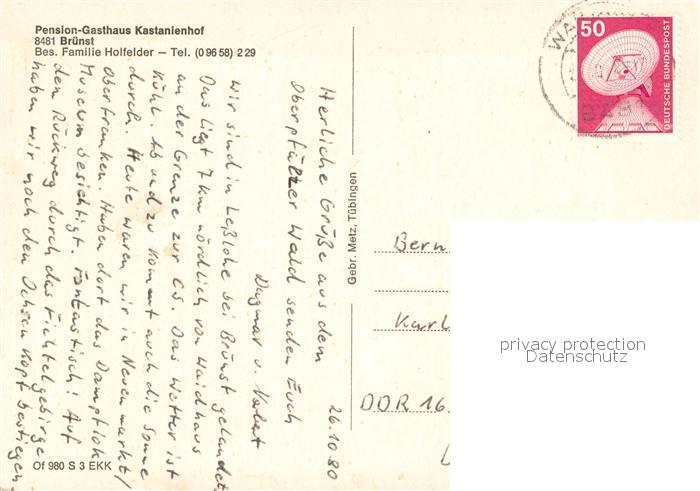 Pension-Gasthaus Kastanienhof
8481 Brünst
Bes. Familie Holfelder — Tel. (0 96 58) 2 29
26.10.80
Herliche Grüße aus dem
Oberpfälzer Wald senden Euch
Dagmar u.
wir sind in Leßlohe bei Brünst gelandet.
Das liegt 7 km nördlich von Waidhaus
an der Grenze zur CS. Das Wetter ist
kühl. Ab und zu kommt auch die Sonne
durch. Heute waren wir in Neuenmarkt/
Oberfranken. Haben dort das Dampflok
Museum besichtigt. Fantastisch! Auf
den Rückweg durch das Fichtelgebirge
haben wir noch den Ochsenkopf bestiegen
Of 980 S 3 EKK
Gebr. Metz, Tübingen
50
DEUTSCHE BUNDESPOST
Bern
Karl
DDR 16
privacy protection
Datenschutz